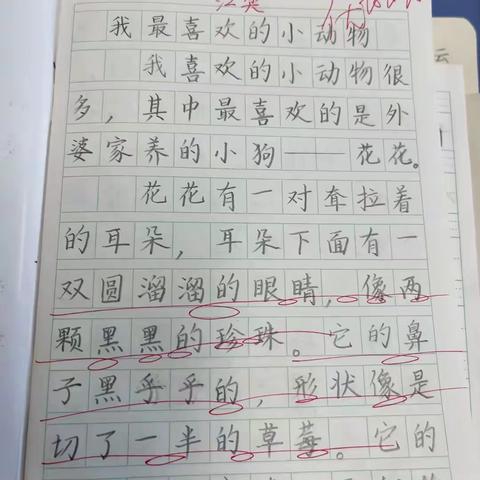 我最喜欢的小动物
我喜欢的小动物很
多，其中最喜欢的是外
婆家养的小狗——花花。
花花有一对耷拉着
的耳朵，耳朵下面有一
双圆溜溜的眼睛，像两
颗黑黑的珍珠。它的鼻
子黑乎乎的，形状像是
切了一半的草莓。它的